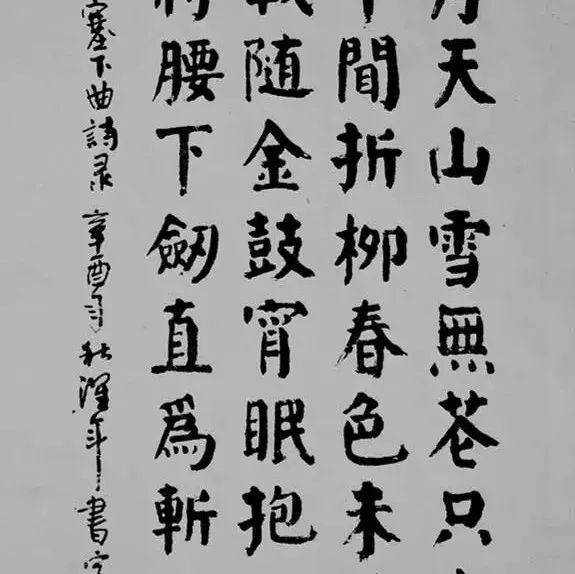 月天山雪無花只
中聞折柳春色未
戰隨金鼓宵眠抱
將腰下劒直爲斬
塞下曲詩录 辛酉年秋 年書